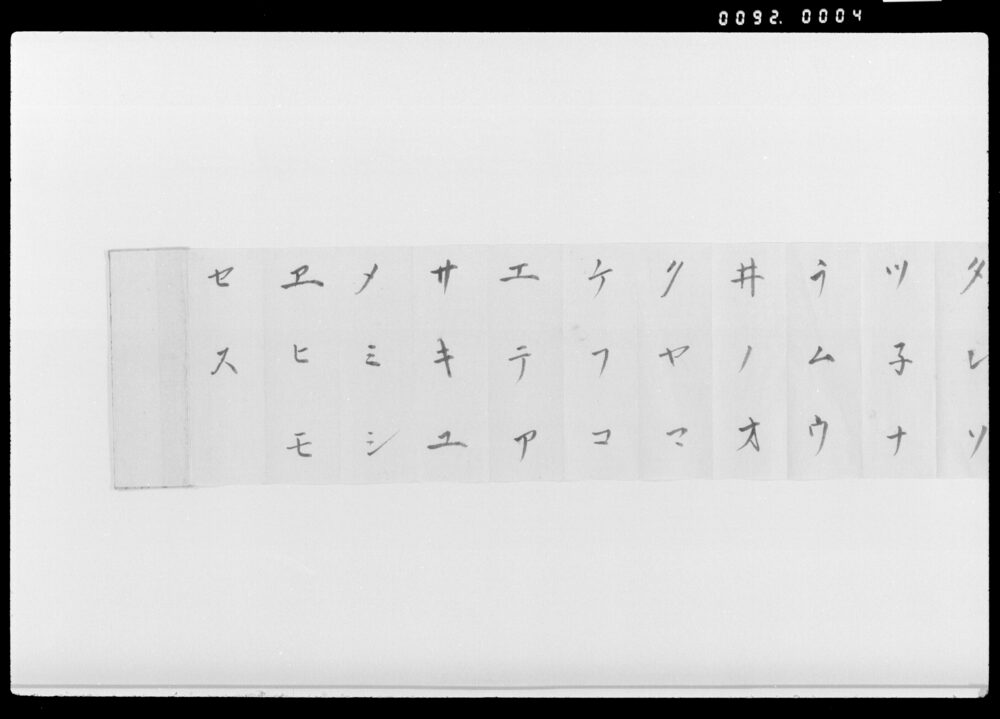 0092. 0004
タレソ
ツ子ナ
ラムウ
井ノオ
クヤマ
ケフコ
エテア
サキユ
メミシ
ヱヒモ
セス